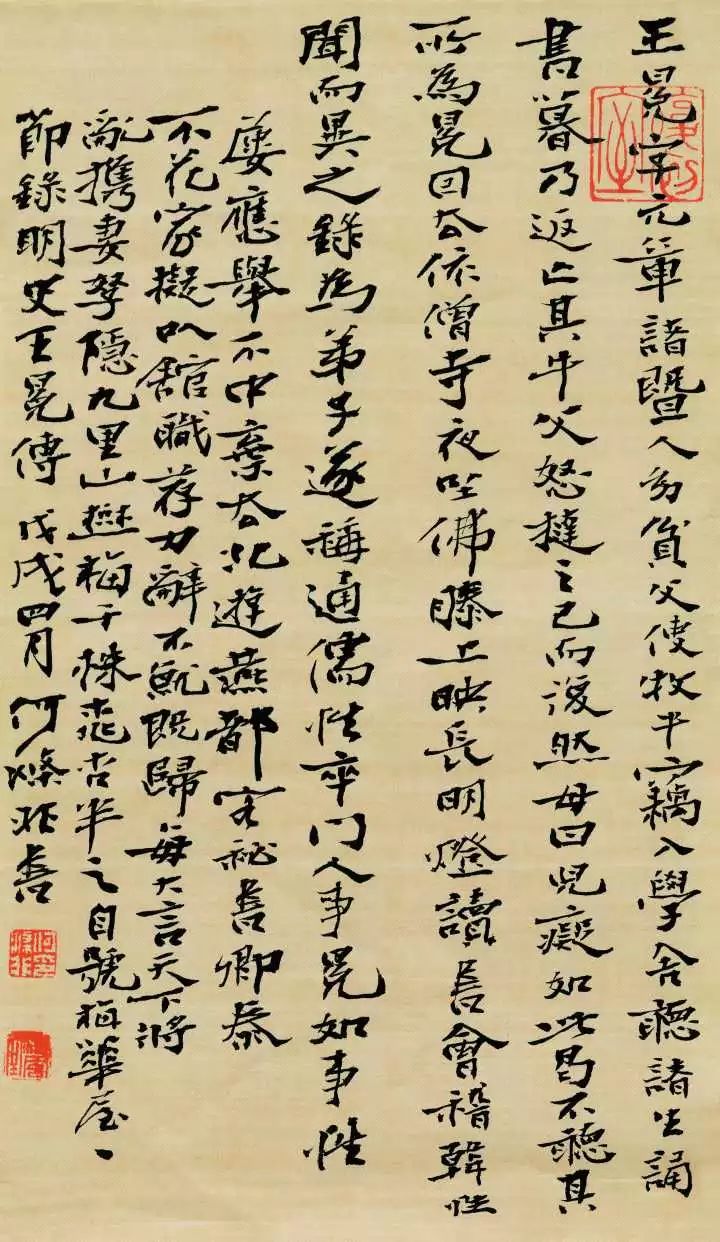 王冕字元章諸暨人幼貧父使牧牛竊入學舍聽諸生誦
書暮乃返亡其牛父怒撻之已而復然母曰兒癡如此曷不聽其
所為冕因去依僧寺夜坐佛膝上映長明燈讀書會稽韓性
聞而異之錄為弟子遂稱通儒性卒門人事冕如事性
屢應舉不中棄去北遊燕都客秘書卿泰
不花家擬以館職荐力辭不就既歸每大言天下將
亂携妻孥隱九里山樹梅千株桃杏半之自號梅華屋、
節錄明史王冕傳 戊戌四月何滌非書